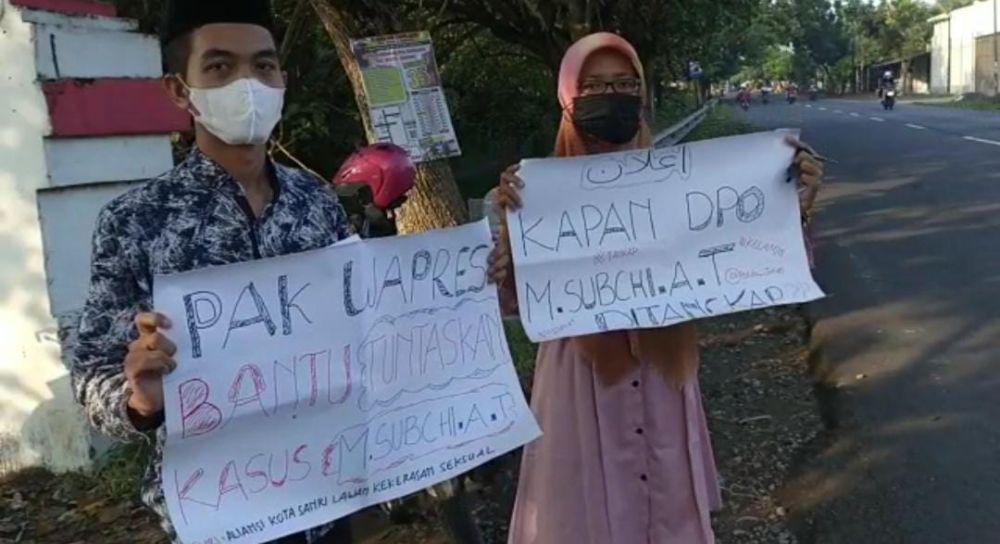 PAK WAPRES
BANTU TUNTASKAN
KASUS M.SUBCHI.A.T
ALIANSI KOTA SANTRI LAWAN KEKERASAN SEKSUAL
اعلان
KAPAN DPO
M.SUBCHI.A.T
DITANGKAP